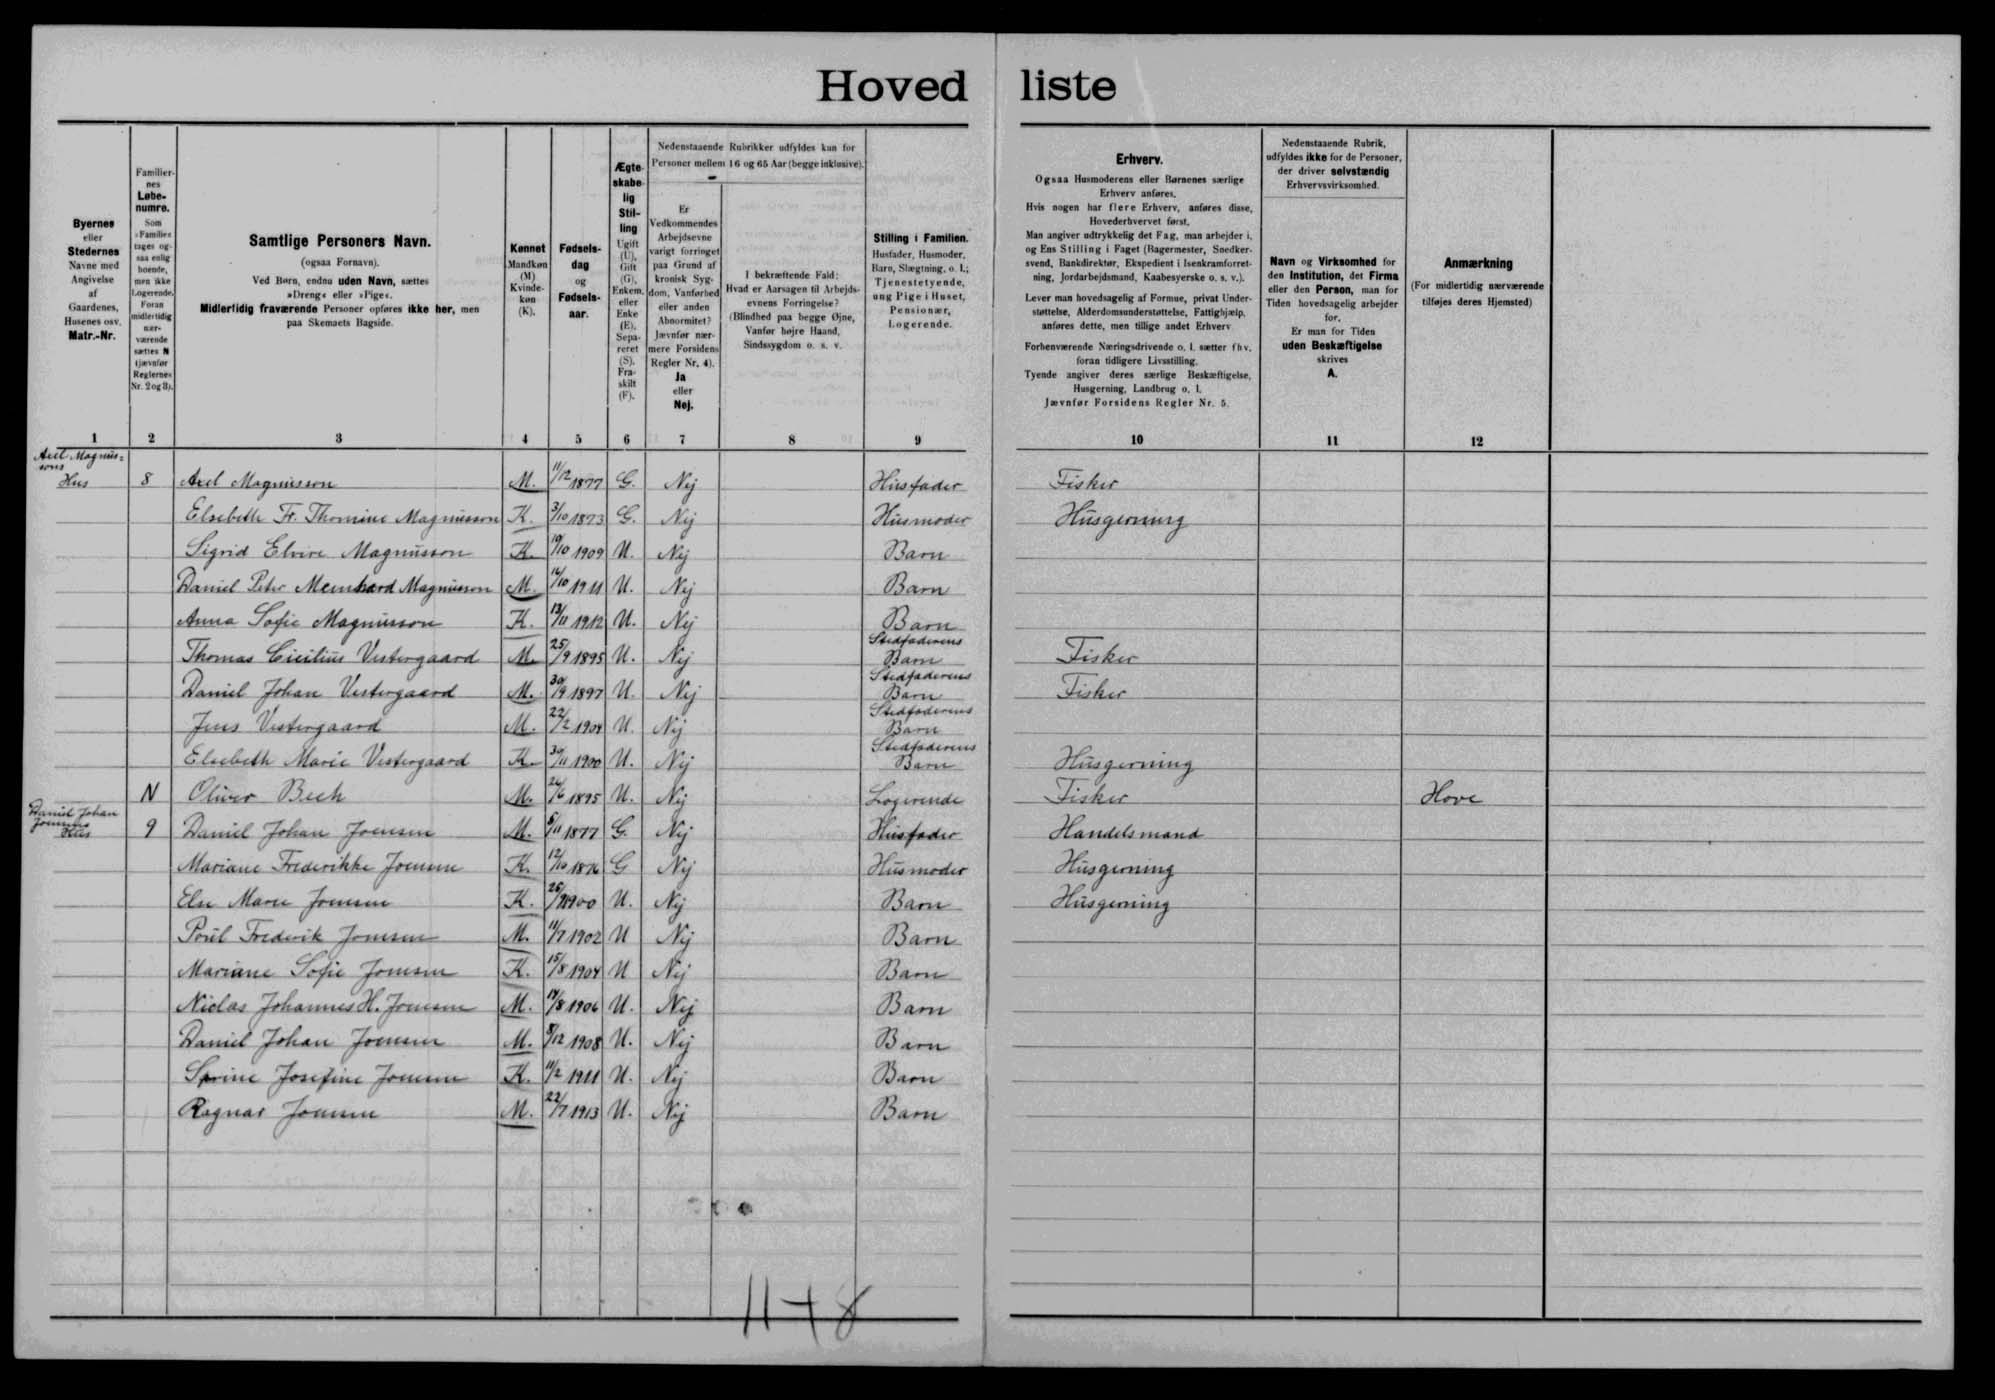 Hoved liste
Byernes
eller
Stedernes
Navne med
Angivelse
af
Gaardenes,
Husenes osv.
Matr.-Nr.
Familier-
nes
Løbe-
numre.
Som
»Familie«
tages og-
saa enlig
boende,
men ikke
Logerende.
Foran
midlertidig
nær-
værende
sættes N
(jævnfør
Reglernes
Nr. 2 og 3).
Samtlige Personers Navn.
(ogsaa Fornavn).
Ved Børn, endnu uden Navn, sættes
»Dreng« eller »Pige«.
Midlertidig fraværende Personer opføres ikke her, men
paa Skemaets Bagside.
Kønnet
Mandkøn
(M)
Kvinde-
køn
(K).
Fødsels-
dag
og
Fødsels-
aar.
Ægte-
skabe-
lig
Stil-
ling
Ugift
(U),
Gift
(G),
Enkem.
eller
Enke
(E),
Sepa-
reret
(S).
Fra-
skilt
(F).
Nedenstaaende Rubrikker udfyldes kun for
Personer mellem 16 og 65 Aar (begge inklusive).
Er
Vedkommendes
Arbejdsevne
varigt forringet
paa Grund af
kronisk Syg-
dom, Vanførhed
eller anden
Abnormitet?
Jævnfør nær-
mere Forsidens
Regler Nr. 4).
Ja
eller
Nej.
I bekræftende Fald:
Hvad er Aarsagen til Arbejds-
evnens Forringelse?
(Blindhed paa begge Øjne,
Vanfør højre Haand,
Sindssygdom o. s. v.
Stilling i Familien.
Husfader, Husmoder,
Barn, Slægtning, o. l.;
Tjenestetyende,
ung Pige i Huset,
Pensionær,
Logerende.
Erhverv.
Ogsaa Husmoderens eller Børnenes særlige
Erhverv anføres.
Hvis nogen har flere Erhverv, anføres disse,
Hovederhvervet først.
Man angiver udtrykkelig det Fag, man arbejder i,
og Ens Stilling i Faget (Bagermester, Snedker-
svend, Bankdirektør, Ekspedient i Isenkramforret-
ning, Jordarbejdsmand, Kaabesyerske o. s. v.).
Lever man hovedsagelig af Formue, privat Under-
støttelse, Alderdomsunderstøttelse, Fattighjælp,
anføres dette, men tillige andet Erhverv
Forhenværende Næringsdrivende o. l. sætter fhv.
foran tidligere Livsstilling.
Tyende angiver deres særlige Beskæftigelse,
Husgerning, Landbrug o. l.
Jævnfør Forsidens Regler Nr. 5.
Nedenstaaende Rubrik,
udfyldes ikke for de Personer,
der driver selvstændig
Erhvervsvirksomhed.
Navn og Virksomhed for
den Institution, det Firma
eller den Person, man for
Tiden hovedsagelig arbejder
for.
Er man for Tiden
uden Beskæftigelse
skrives
A.
Anmærkning
(For midlertidig nærværende
tilføjes deres Hjemsted)
1 2 3 4 5 6 7 8 9 10 11 12
Axel Magnus-
sons
Hus 8 Axel Magnusson M. 11/12 1877 G. Nej Husfader Fisker
Elsebeth Fr. Thomine Magnusson K. 3/10 1873 G. Nej Husmoder Husgerning
Sigrid Elvire Magnusson K. 19/10 1909 U. Nej Barn
Daniel Peter Meinhard Magnusson M. 16/10 1911 U. Nej Barn
Anna Sofie Magnusson K. 13/11 1912 U. Nej Barn
Thomas Cicilius Vestergaard M. 25/9 1895 U. Nej Stedfaderens Barn Fisker
Daniel Johan Vestergaard M. 30/9 1897 U. Nej Stedfaderens Barn Fisker
Jens Vestergaard M. 22/2 1904 U. Nej Stedfaderens Barn
Elsebeth Marie Vestergaard K. 30/11 1900 U. Nej Stedfaderens Barn Husgerning
N Oliver Bech M. 26/6 1895 U. Nej Logerende Fisker Hove
Daniel Johan
Joensens
Hus 9 Daniel Johan Joensen M. 5/11 1877 G. Nej Husfader Handelsmand
Mariane Frederikke Joensen K. 12/10 1876 G Nej Husmoder Husgerning
Else Marie Joensen K. 26/9 1900 U. Nej Barn Husgerning
Poul Frederik Joensen M. 11/7 1902 U Nej Barn
Mariane Sofie Joensen K. 15/8 1904 U Nej Barn
Niclas Johannes H. Joensen M. 14/8 1906 U. Nej Barn
Daniel Johan Joensen M. 8/12 1908 U. Nej Barn
Josefine Joensen K. 11/2 1911 U. Nej Barn
Ragnar Joensen M. 22/7 1913 U. Nej Barn
11+8